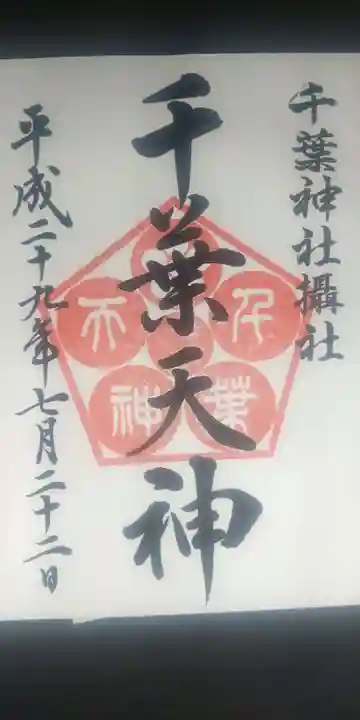 千葉神社攝社
千葉天神
千葉天神
平成二十九年七月二十二日